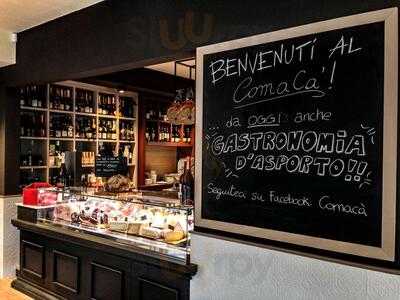 BENVENUTI AL
ComaCa'!
...da OGGI anche
"GASTRONOMIA
D'ASPORTO!!
Seguitea su Facebook: Comacà